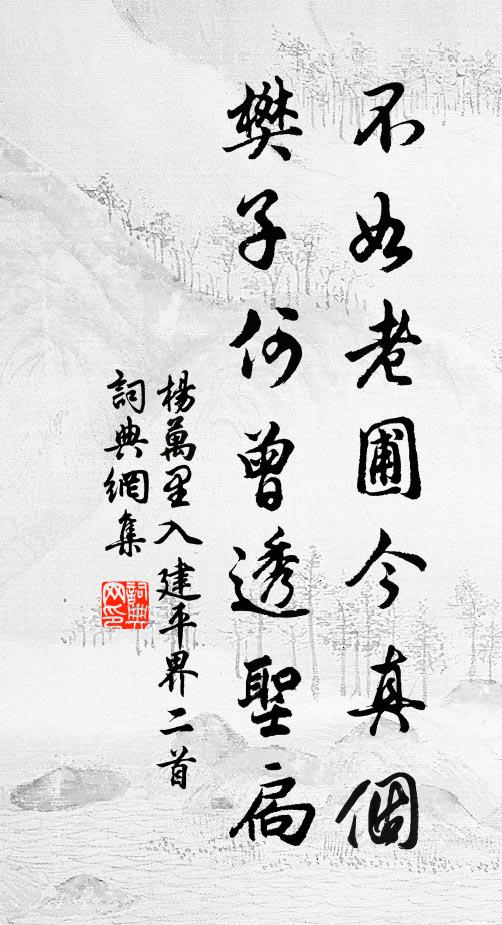 不如老圃今真個
樊子何曾透聖扃
楊萬里入建平界二首
詞典網集
詞典
网印